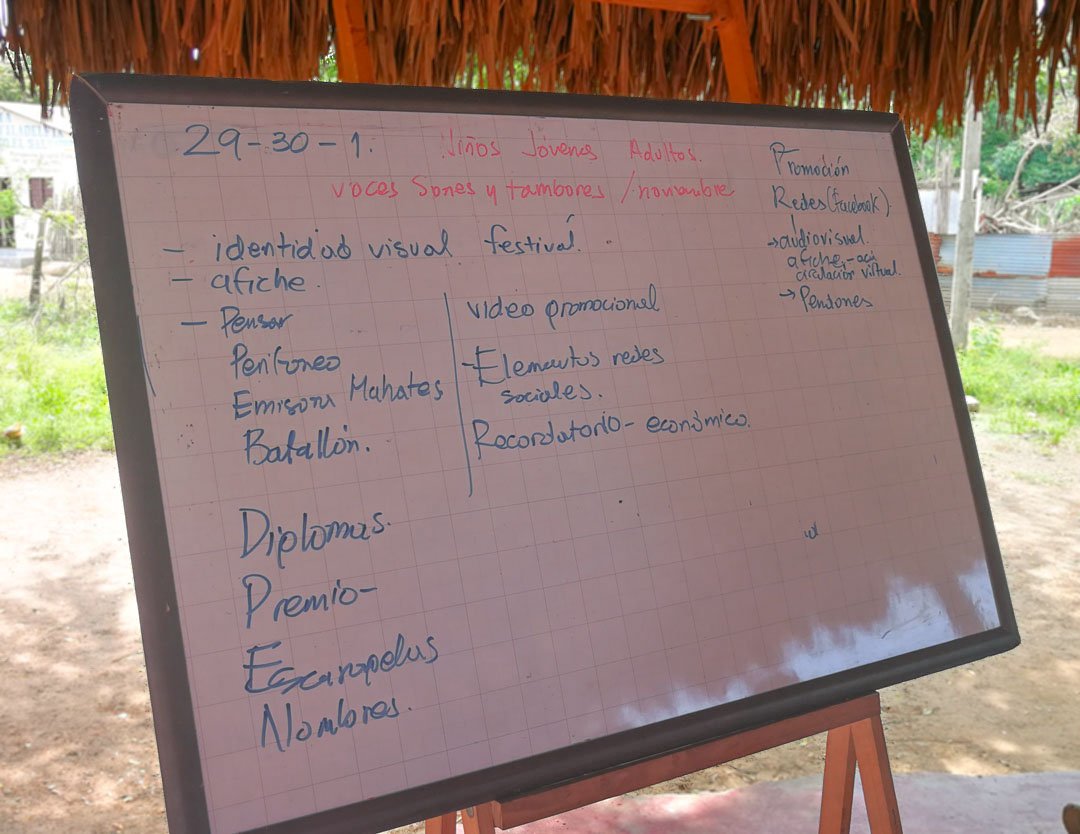 29-30-1.
Niños Jóvenes Adultos.
voces Sones y tambores / noviembre
- identidad visual festival.
- afiche.
- Pensar
Perifoneo
Emisora Mahates
Batallón.
video promocional
- Elementos redes
sociales.
Recordatorio - económico.
Diplomas.
Premio -
Escarapelas
Nombres.
Promoción
Redes (facebook)
→ audiovisual.
afiche -
circulación virtual.
→ Pendones